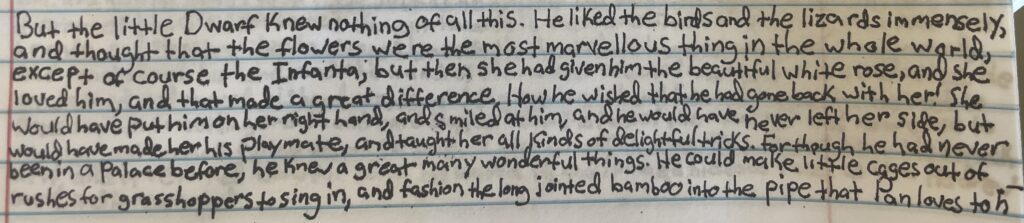 But the little Dwarf knew nothing of all this. He liked the birds and the lizards immensely,
and thought that the flowers were the most marvellous thing in the whole world,
except of course the Infanta, but then she had given him the beautiful white rose, and she
loved him, and that made a great difference. How he wished that he had gone back with her! She
would have put him on her right hand, and smiled at him, and he would have never left her side, but
would have made her his playmate, and taught her all kinds of delightful tricks. For though he had never
been in a palace before, he knew a great many wonderful things. He could make little cages out of
rushes for grasshoppers to sing in, and fashion the long jointed bamboo into the pipe that Pan loves to